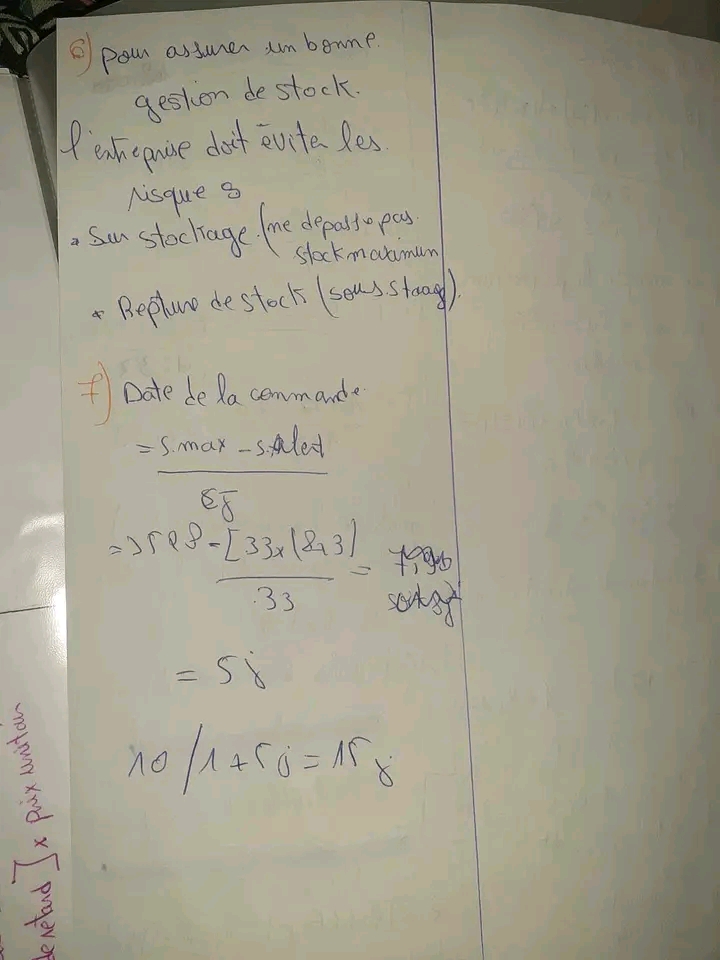 6) pour assurer un bonne.
gestion de stock.
l'entreprise doit éviter les.
risque :
* Sur stockage. (ne depasse pas.
stock maximun
* Repture de stock (sous.stoag).
7) Date de la commande.
= s.max - s.Alert
Cj
- [33x(8+3)
33
= 5j
10/1+5j = 15j
de retard ] x prix unitair